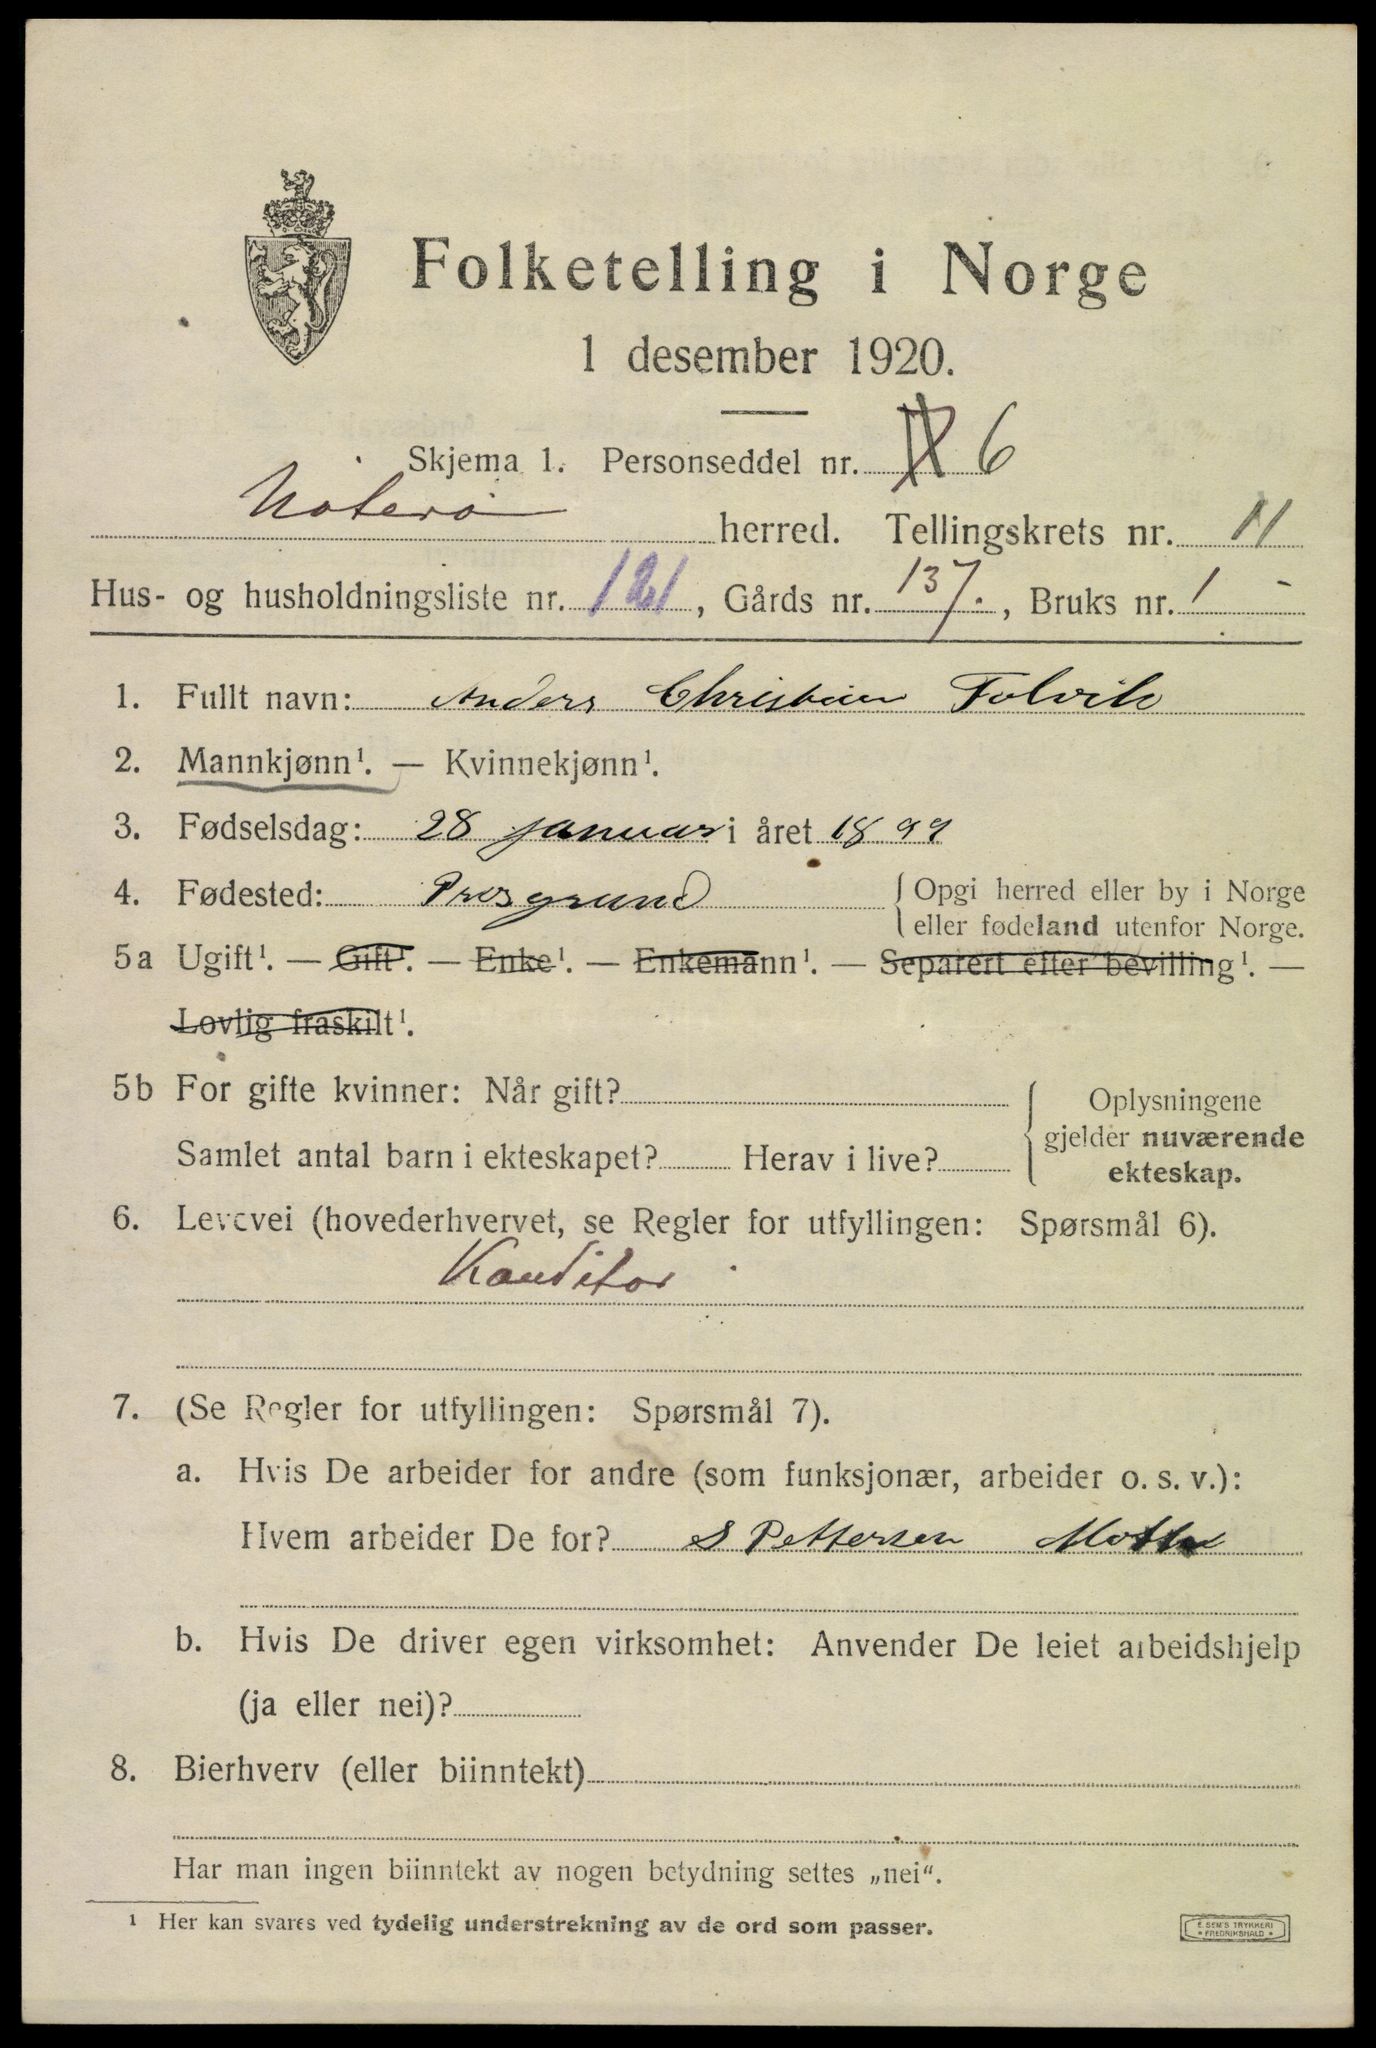 Folketelling i Norge
1 desember 1920.
Skjema 1. Personseddel nr. 6
Nøterø herred. Tellingskrets nr. 11
Hus- og husholdningsliste nr. 121, Gårds nr. 137., Bruks nr. 1 -
1. Fullt navn: Anders Christian Folvik
2. Mannkjønn¹. — Kvinnekjønn¹.
3. Fødselsdag: 28 januar i året 1899
4. Fødested: Prosgrund { Opgi herred eller by i Norge
eller fødeland utenfor Norge.
5a Ugift¹. — Gift¹. — Enke¹. — Enkemann¹. — Separert efter bevilling¹. —
Lovlig fraskilt¹.
5b For gifte kvinner: Når gift? { Oplysningene
gjelder nuværende
Samlet antal barn i ekteskapet? Herav i live? ekteskap.
6. Levevei (hovederhvervet, se Regler for utfyllingen: Spørsmål 6).
Konditor
7. (Se Regler for utfyllingen: Spørsmål 7).
a. Hvis De arbeider for andre (som funksjonær, arbeider o. s. v.):
Hvem arbeider De for? S Pettersen
b. Hvis De driver egen virksomhet: Anvender De leiet arbeidshjelp
(ja eller nei)?
8. Bierhverv (eller biinntekt)
Har man ingen biinntekt av nogen betydning settes „nei“.
¹ Her kan svares ved tydelig understrekning av de ord som passer.
E. SEM'S TRYKKERI
* FREDRIKSHALD *